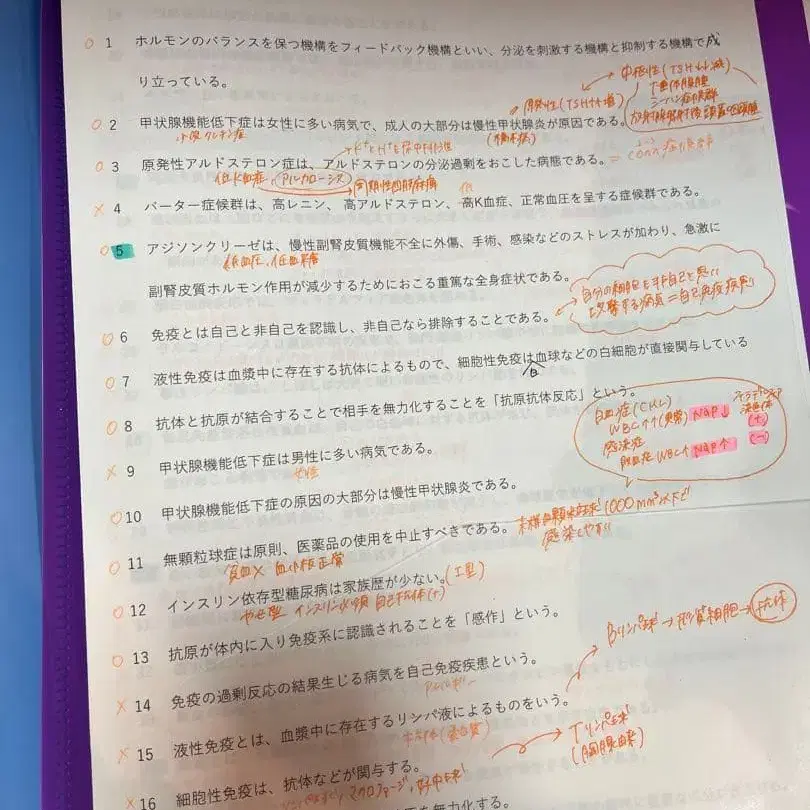 ○ 1 ホルモンのバランスを保つ機構をフィードバック機構といい、分泌を刺激する機構と抑制する機構で成
り立っている。
中枢性(TSH↓↓減)
下垂体腫瘍
シーハン症候群
原発性(TSH↑↑増)
○ 2 甲状腺機能低下症は女性に多い病気で、成人の大部分は慢性甲状腺炎が原因である。
小児クレチン症
(橋本病)
○ 3 原発性アルドステロン症は、アルドステロンの分泌過剰をおこした病態である。
低K血症、アルカローシス 周期性四肢麻痺
低
× 4 バーター症候群は、高レニン、高アルドステロン、高K血症、正常血圧を呈する症候群である。
○ 5 アジソンクリーゼは、慢性副腎皮質機能不全に外傷、手術、感染などのストレスが加わり、急激に
低血圧、低血糖
副腎皮質ホルモン作用が減少するためにおこる重篤な全身症状である。
自分の細胞を非自己と思い
攻撃する病気=自己免疫疾患
○ 6 免疫とは自己と非自己を認識し、非自己なら排除することである。
○ 7 液性免疫は血漿中に存在する抗体によるもので、細胞性免疫は血球などの白細胞が直接関与している
白
○ 8 抗体と抗原が結合することで相手を無力化することを「抗原抗体反応」という。
白血症(CML)
WBC↑↑(異常) NAP↓ (+)
感染症
WBC↑ NAP↑ (−)
× 9 甲状腺機能低下症は男性に多い病気である。
女性
○ 10 甲状腺機能低下症の原因の大部分は慢性甲状腺炎である。
○ 11 無顆粒球症は原則、医薬品の使用を中止すべきである。
末梢血顆粒球 1000mm³以下
感染しやすい
貧血× 血小板正常
○ 12 インスリン依存型糖尿病は家族歴が少ない。(I型)
やせ型 インスリン必須 自己抗体(+)
○ 13 抗原が体内に入り免疫系に認識されることを「感作」という。
Bリンパ球→形質細胞→抗体
× 14 免疫の過剰反応の結果生じる病気を自己免疫疾患という。
アレルギー
× 15 液性免疫とは、血漿中に存在するリンパ液によるものをいう。
抗体(蛋白質)
Tリンパ球
(胸腺由来)
× 16 細胞性免疫は、抗体などが関与する。
マクロファージ、好中球
を無力化する。